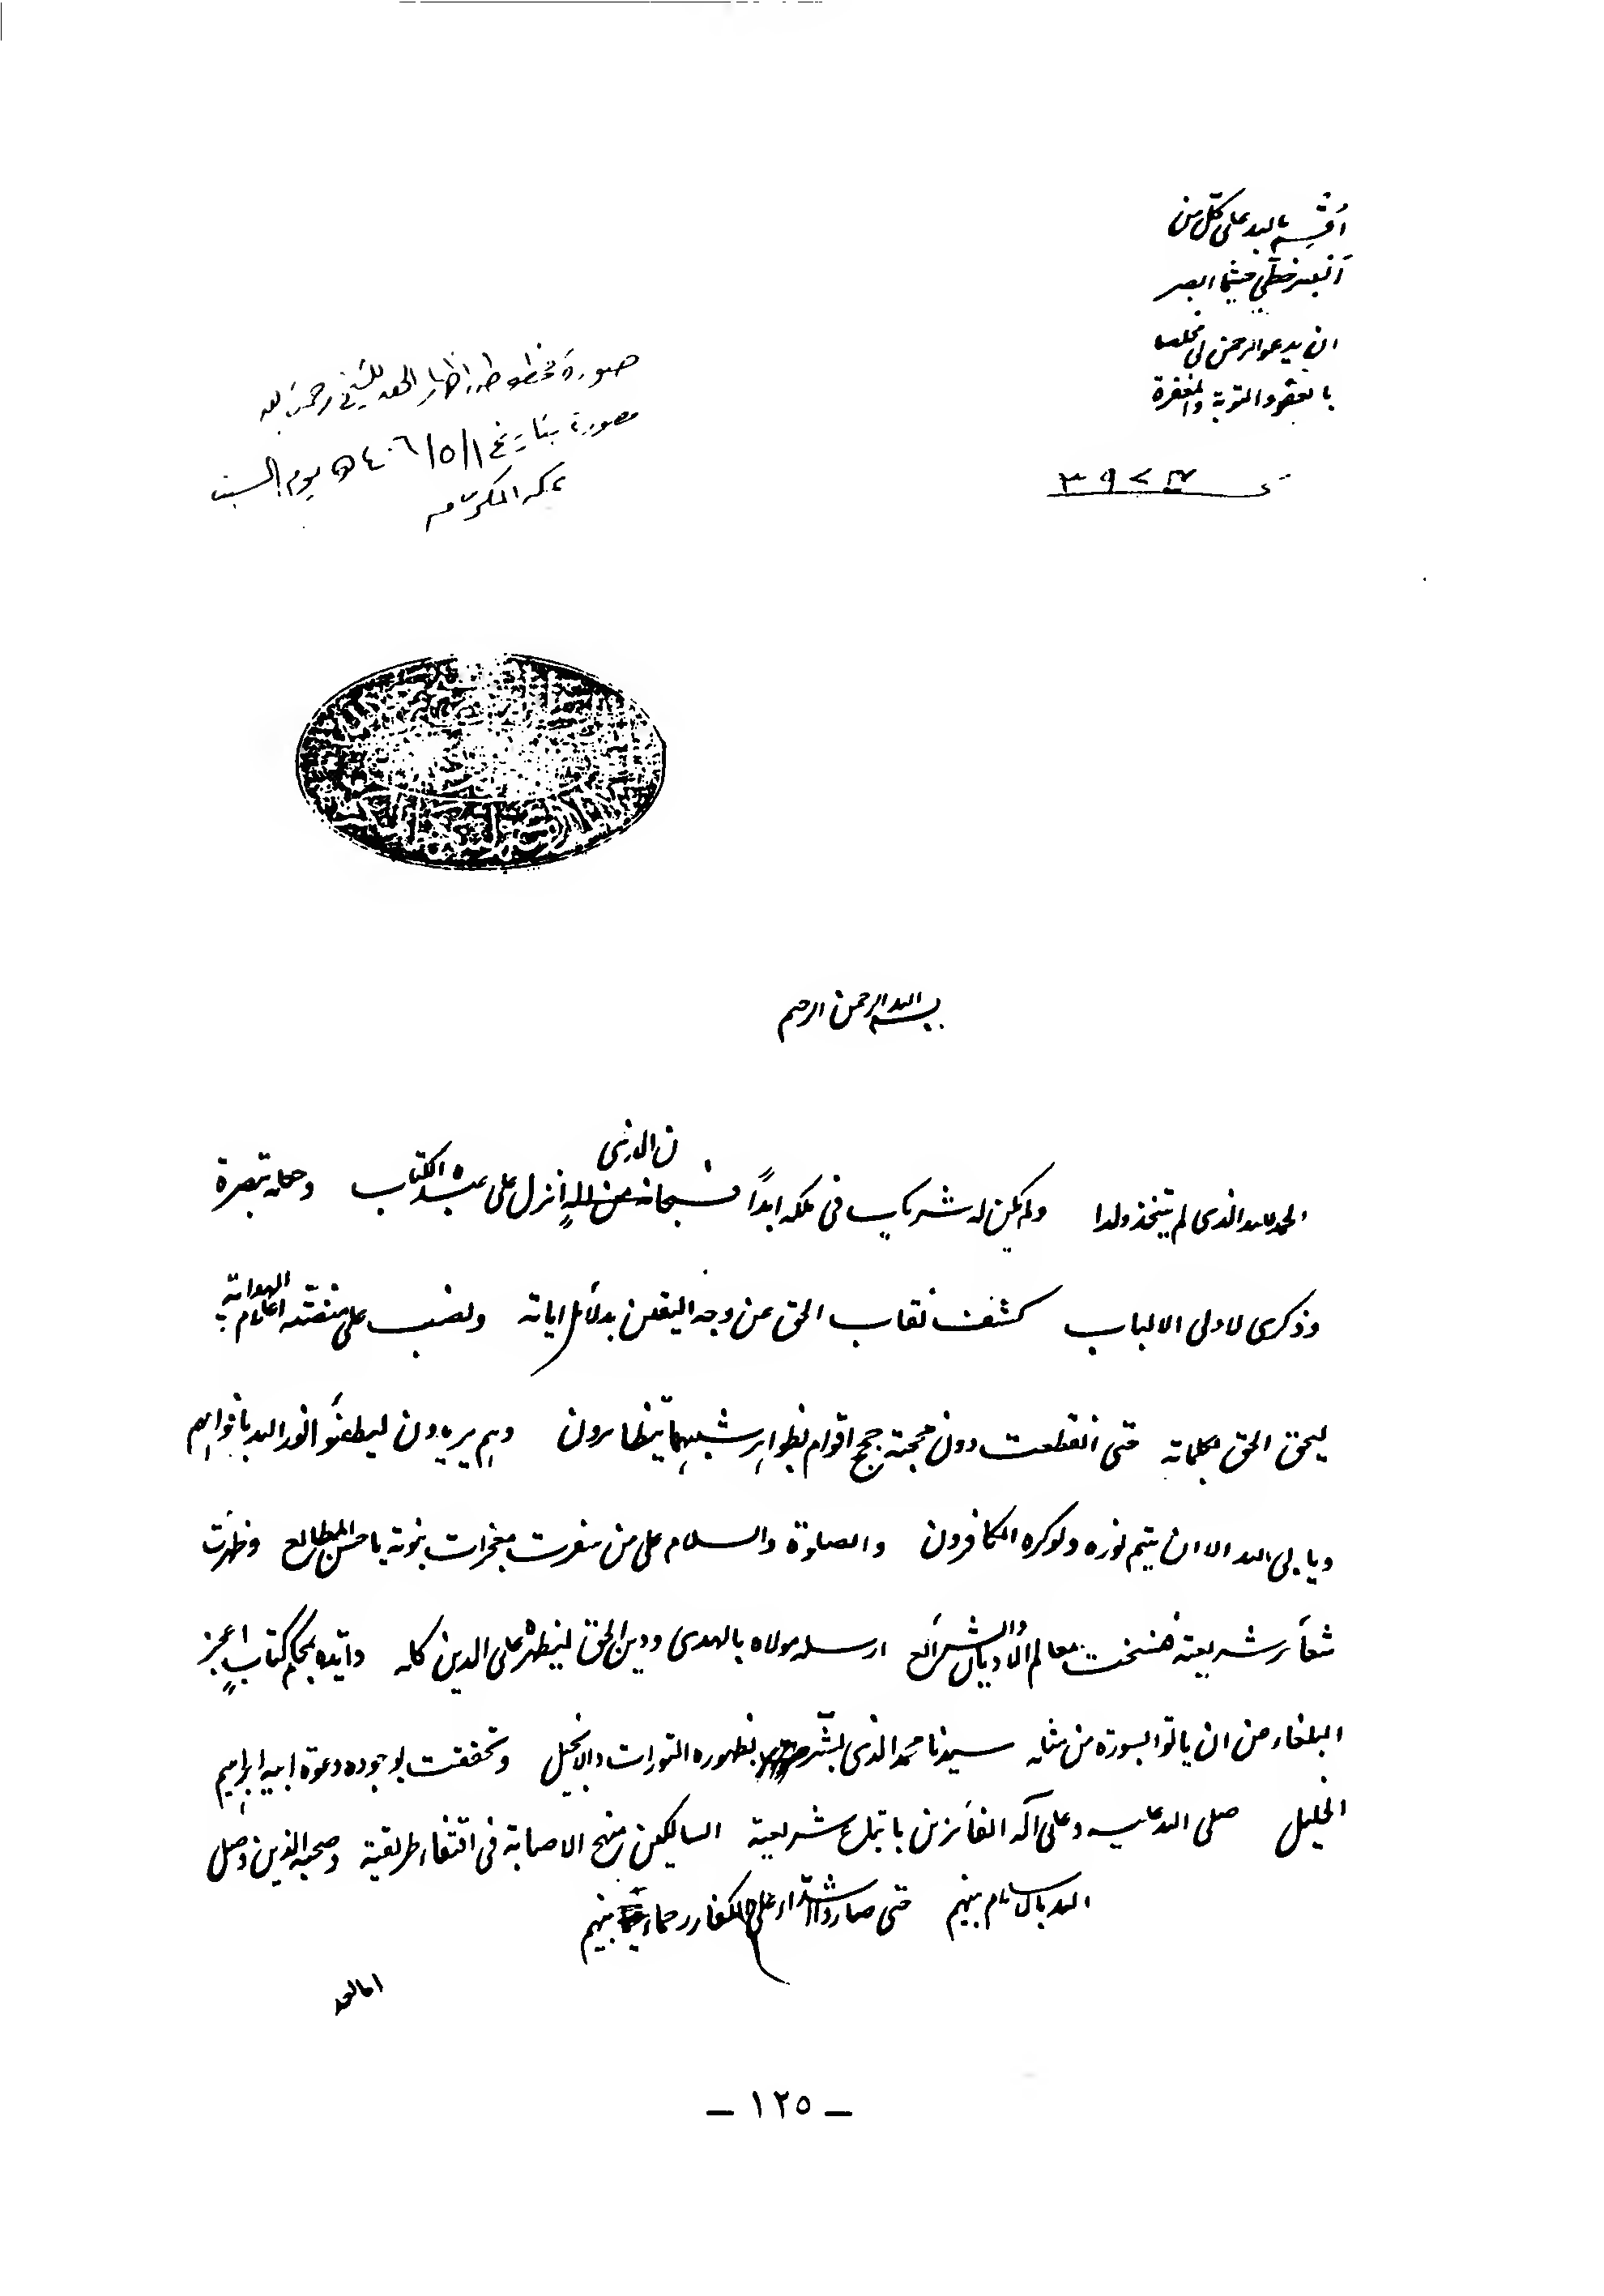 أقسم بالله على كل من
أبصر خطي حيثما ابصر
ان يدعو الرحمن لي مخلصا
بالعفو والتوبة والمغفرة
صورة مخطوطة إظهار الحق للشيخ رحمت الله
مصورة بتاريخ ١/٥/١٤٠٦ھ يوم السبت
بمكة المكرمة
بسم الله الرحمن الرحيم
الحمد لله الذى لم يتخذ ولدا ولم يكن له شريك فى ملكه ابداً فسبحان الذى انزل على عبده الكتاب وجعله تبصرة
وذكرى لاولى الالباب كشف نقاب الحق عن وجه اليقين بدلائل اياته ونصب على منصته اعلام الهداية
ليحق الحق بكلماته حتى انقطعت دون محجته حجج اقوام بظواهر شبههم يتظاهرون وهم يريدون ليطفئوا نور الله بافواههم
ويابى الله الا ان يتم نوره ولو كره الكافرون والصلوة والسلام على من سفرت معجزات نبوته باحسن المطالع وظهرت
شعائر شريعته فنسخت معالم الاديان والشرائع ارسله مولاه بالهدى ودين الحق ليظهره على الدين كله وايده بمحكم كتاب اعجز
البلغاء من ان ياتوا بسورة من مثله سيدنا محمد الذى بشر بظهوره التورات والانجيل وتحققت بوجوده دعوة ابيه ابراهيم
الخليل صلى الله عليه وعلى آله الفائزين باتباع شريعته السالكين منهج الاصابة فى اقتفاء طريقته وصحبه الذين وصل
الله بالاسلام بينهم حتى صاروا اشداء على الكفار رحماء بينهم
اما بعد
– ١٢٥ –